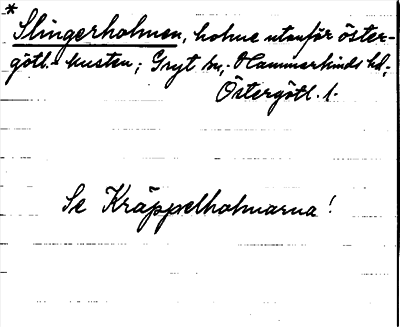 *
Slingerholmen, holme utanför öster-
götl.-kusten; Gryt sn, Hammarkinds hd,
Östergötl. l.
Se Kräppelholmarna!